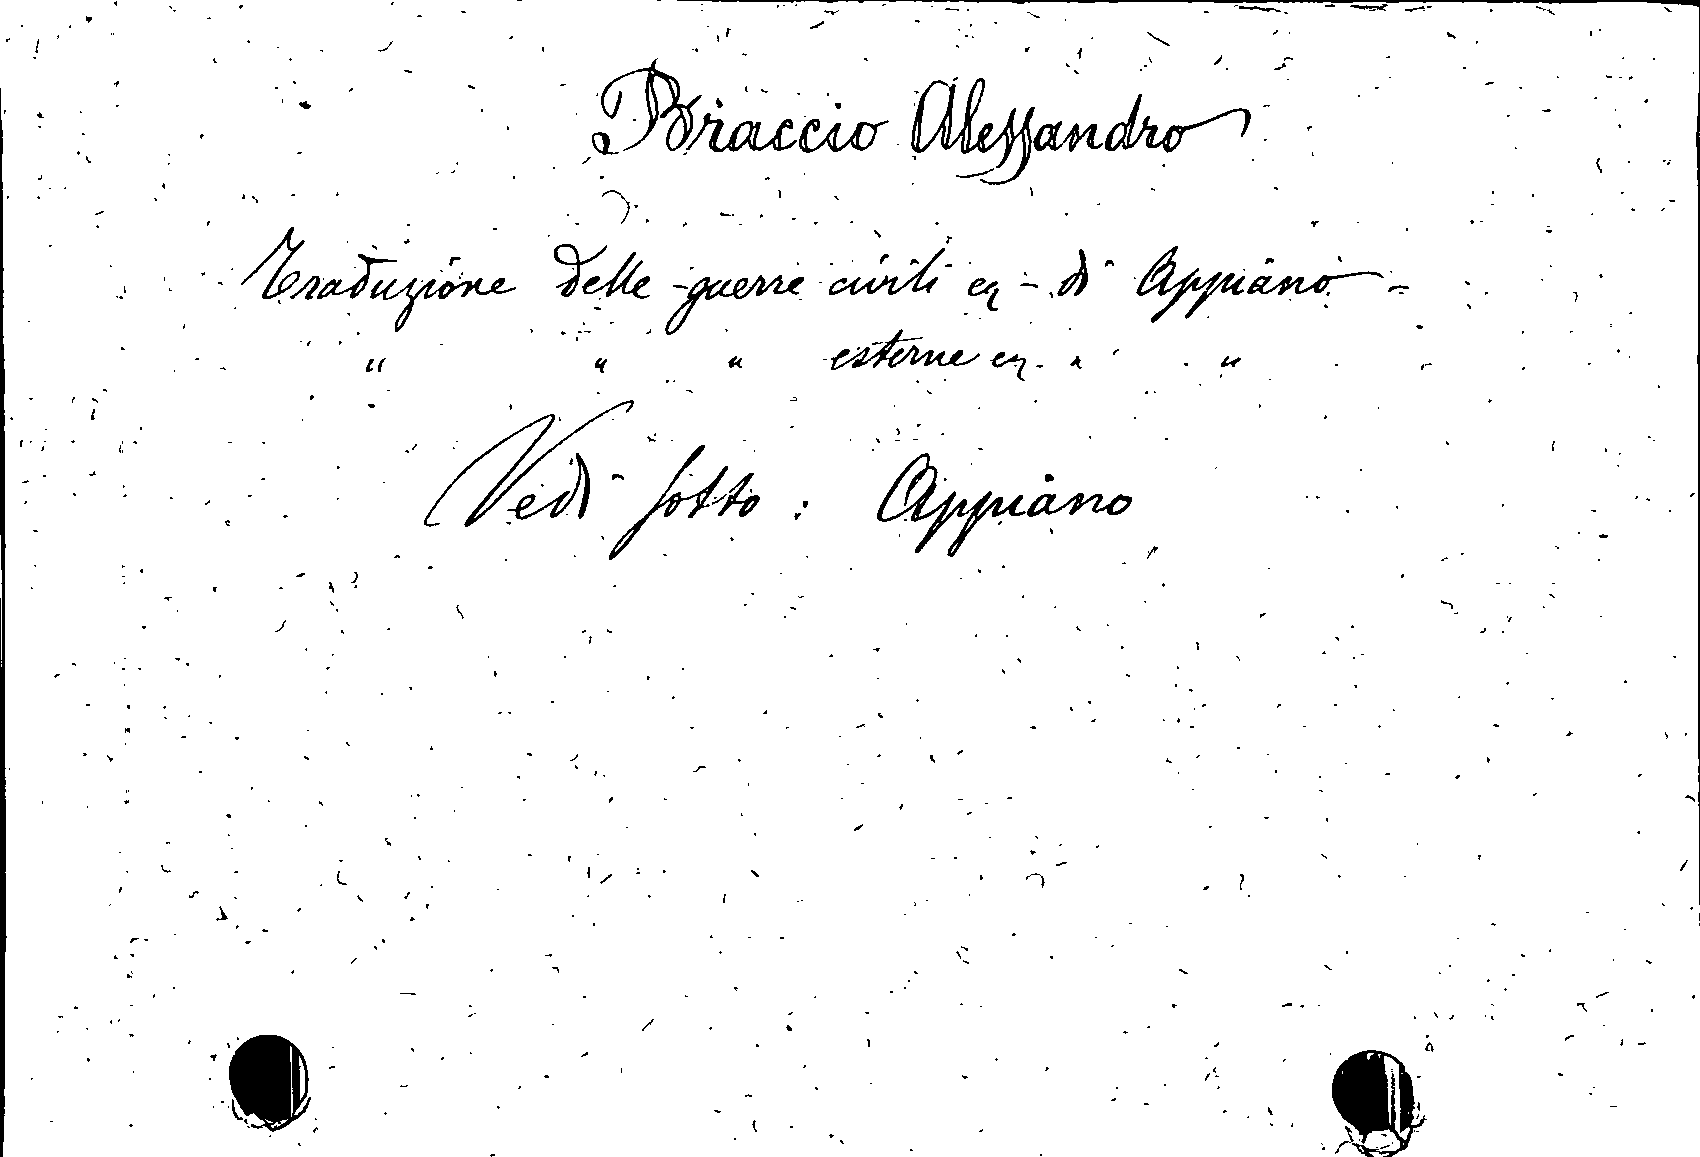 Braccio Alessandro
Traduzione delle guerre civili ec - di Appiano -
" " " esterne ec. " "
Vedi sotto : Appiano